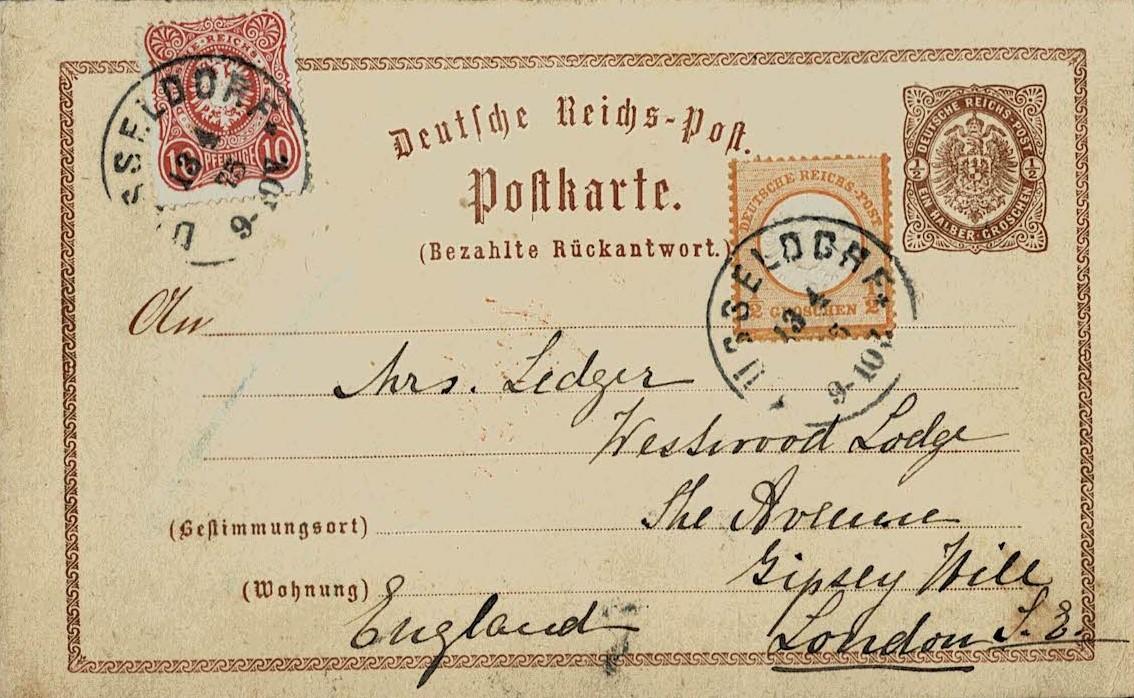 REICHS
10 PFENNIGE 10
DÜSSELDORF
13 4
9-10V.
Deutsche Reichs-Post.
Postkarte.
(Bezahlte Rückantwort.)
DEUTSCHE REICHS-POST
½ ½
EIN HALBER GROSCHEN
DEUTSCHE REICHS-POST
½ GROSCHEN ½
ÜSSELDORF
13 4
9-10V.
An
Mrs. Ledger
Westwood Lodge
The Avenue
(Bestimmungsort)
Gipsey Hill
(Wohnung)
England
London S.E.